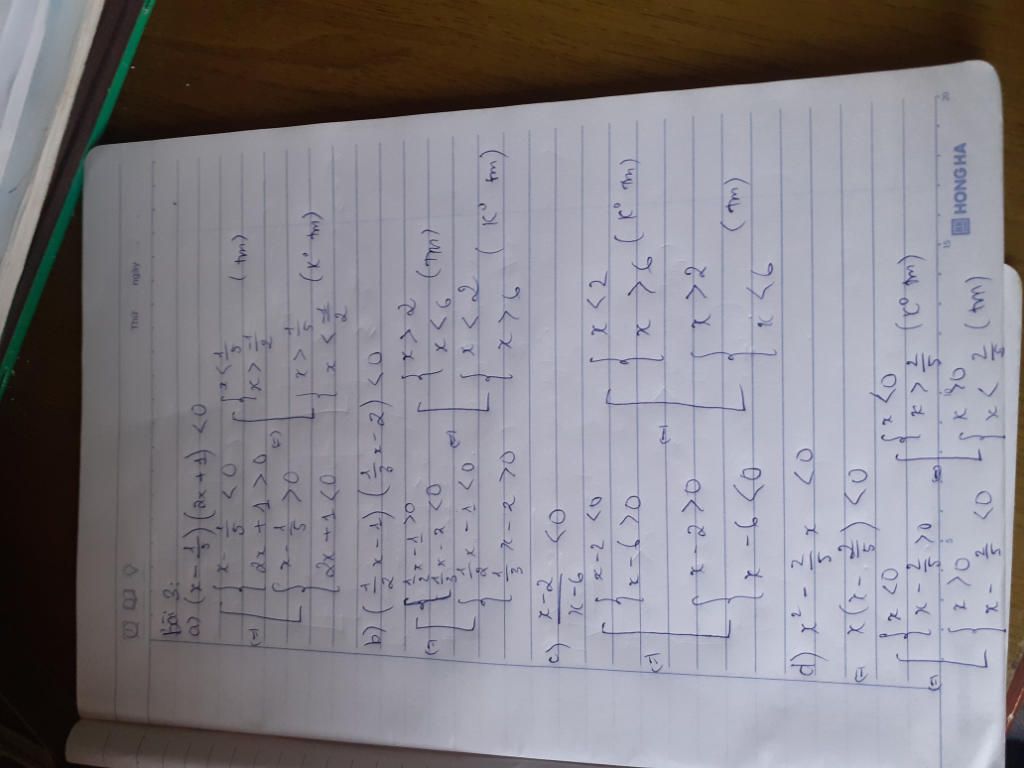 Thứ ngày
Bài 3:
a) (x - 1/5)(2x + 1) < 0
(=) [ { x - 1/5 < 0
2x + 1 > 0
{ x - 1/5 > 0
2x + 1 < 0
(=) [ { x < 1/5
x > -1/2 (tm)
{ x > 1/5
x < -1/2 (K° tm)
b) (1/2 x - 1)(1/3 x - 2) < 0
(=) [ { 1/2 x - 1 > 0
1/3 x - 2 < 0
{ 1/2 x - 1 < 0
1/3 x - 2 > 0
(=) [ { x > 2
x < 6 (tm)
{ x < 2
x > 6 (K° tm)
c) x - 2 / x - 6 < 0
(=) [ { x - 2 < 0
x - 6 > 0
{ x - 2 > 0
x - 6 < 0
(=) [ { x < 2
x > 6 (K° tm)
{ x > 2
x < 6 (tm)
d) x² - 2/5 x < 0
(=) x(x - 2/5) < 0
(=) [ { x < 0
x - 2/5 > 0
{ x > 0
x - 2/5 < 0
(=) [ { x < 0
x > 2/5 (K° tm)
{ x > 0
x < 2/5 (tm)
5 15 20
HONG HA